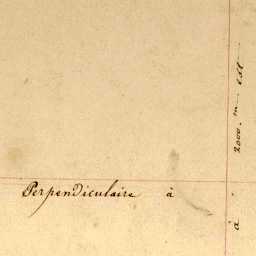 Perpendiculaire à
à 2000. m Est